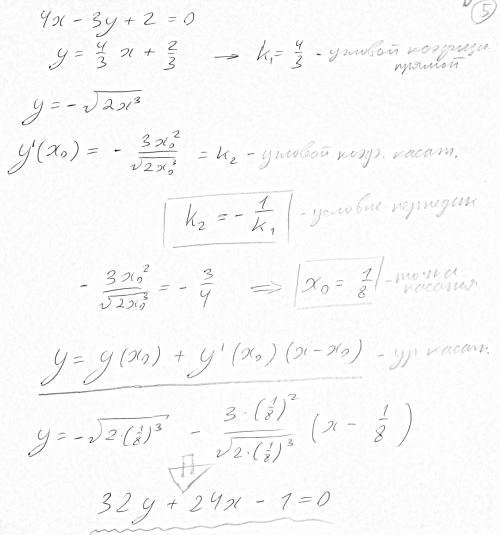 5
4x - 3y + 2 = 0
y = 4/3 x + 2/3 → k₁ = 4/3 - угловой коэфици. прямой
y = -√(2x³)
y'(x₀) = - 3x₀²/√(2x₀³) = k₂ - угловой коэф. касат.
k₂ = - 1/k₁ - условие перпедик
- 3x₀²/√(2x₀³) = - 3/4 ⇒ x₀ = 1/8 - точка касания
y = y(x₀) + y'(x₀)(x - x₀) - ур. касат.
y = -√(2·(1/8)³) - 3·(1/8)²/√(2·(1/8)³) (x - 1/8)
32y + 24x - 1 = 0